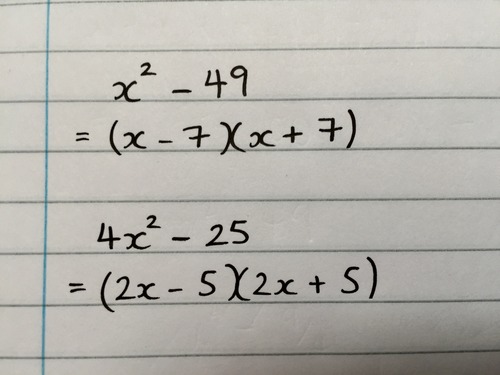 x² - 49
= (x - 7)(x + 7)
4x² - 25
= (2x - 5)(2x + 5)